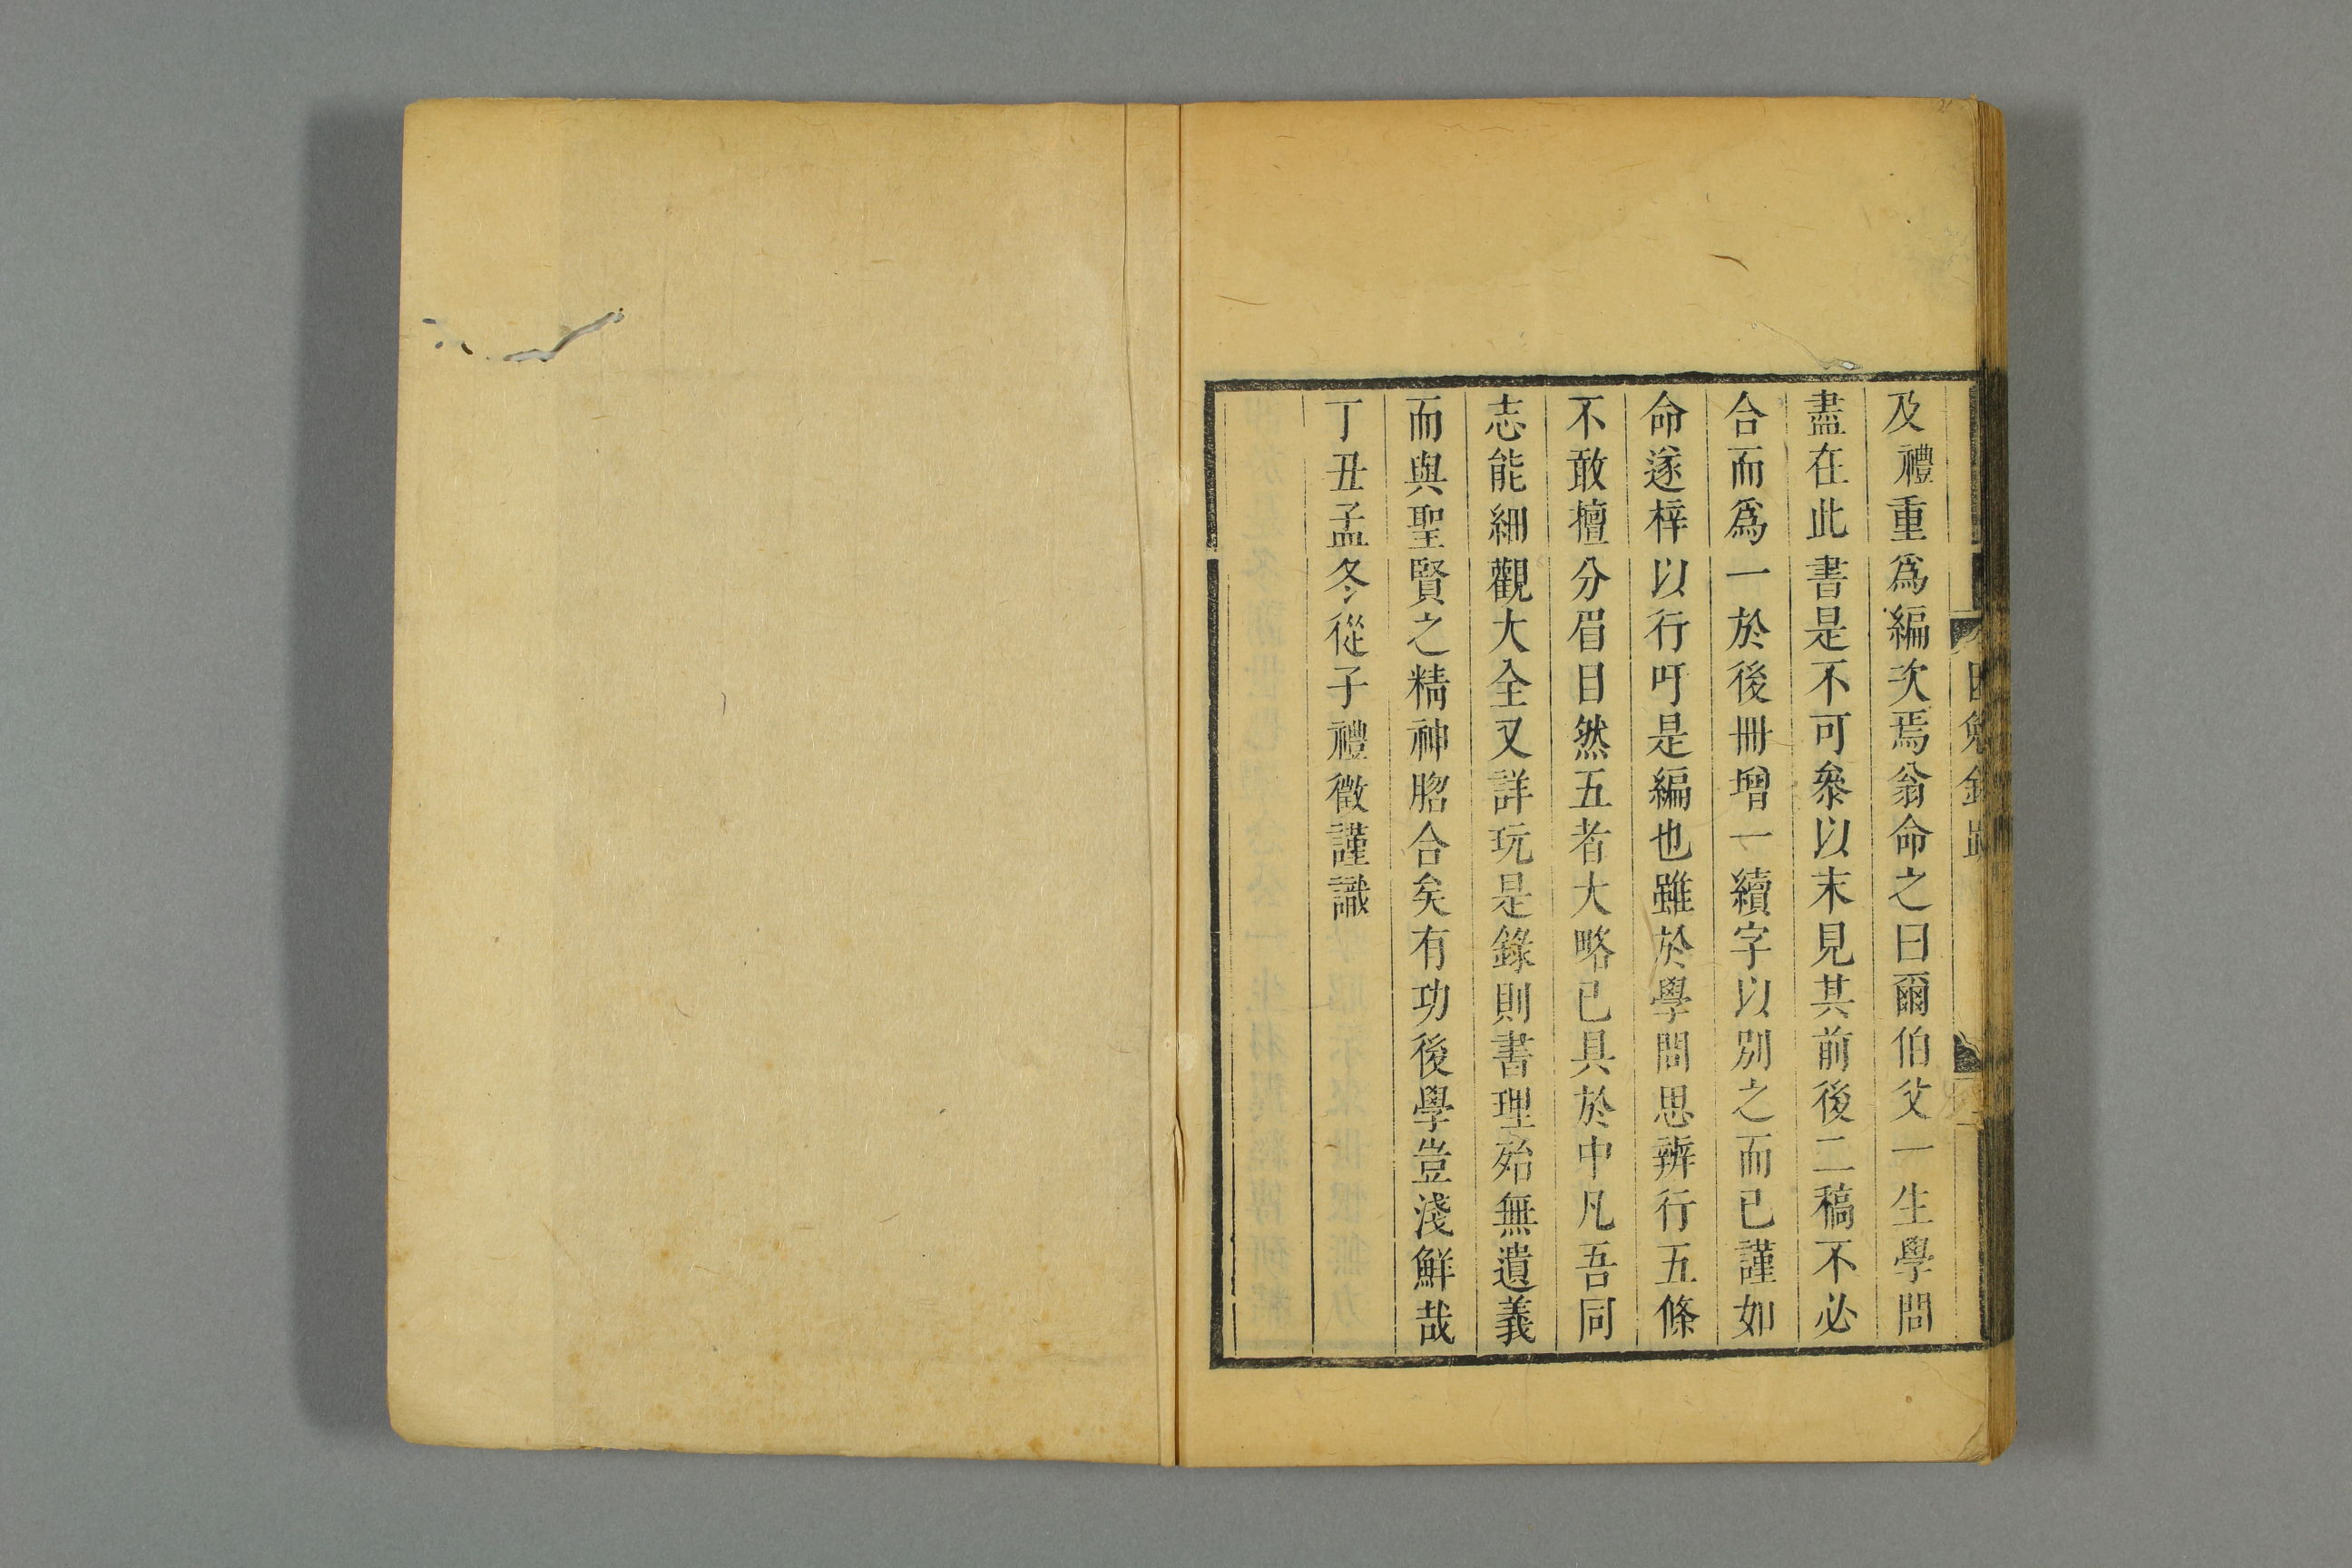 及禮重爲編次焉翁命之曰爾伯父一生學問
盡在此書是不可叅以末見其前後二稿不必
合而爲一於後冊增一續字以別之而已謹如
命遂梓以行吁是編也雖於學問思辨行五條
不敢擅分眉目然五者大略已具於中凡吾同
志能細觀大全又詳玩是錄則書理殆無遺義
而與聖賢之精神脗合矣有功後學豈淺鮮哉
丁丑孟冬從子禮徵謹識